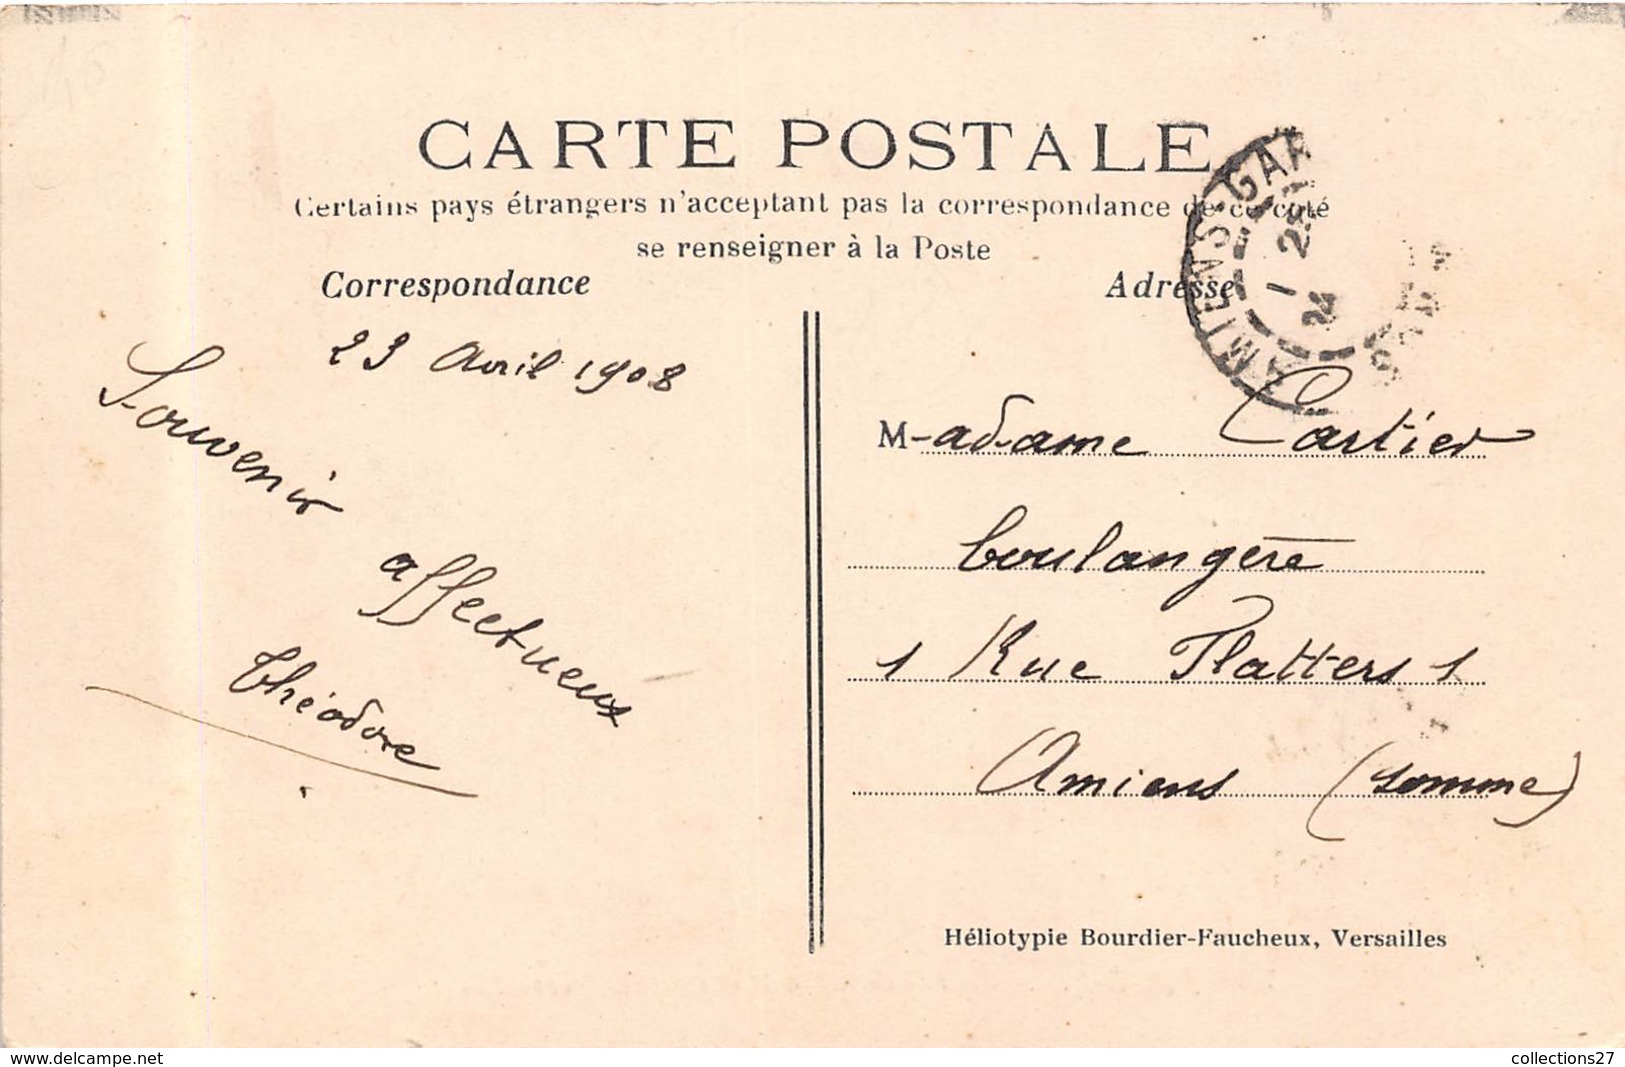 CARTE POSTALE
Certains pays étrangers n'acceptant pas la correspondance de ce côté
se renseigner à la Poste
Correspondance
Adresse
AMIENS-GAR
23 Avril 1908
Souvenir
affectueux
Théodore
M-adame Cartier
boulangère
1 Rue Flatters 1
Amiens (Somme)
Héliotypie Bourdier-Faucheux, Versailles
www.delcampe.net
collections27